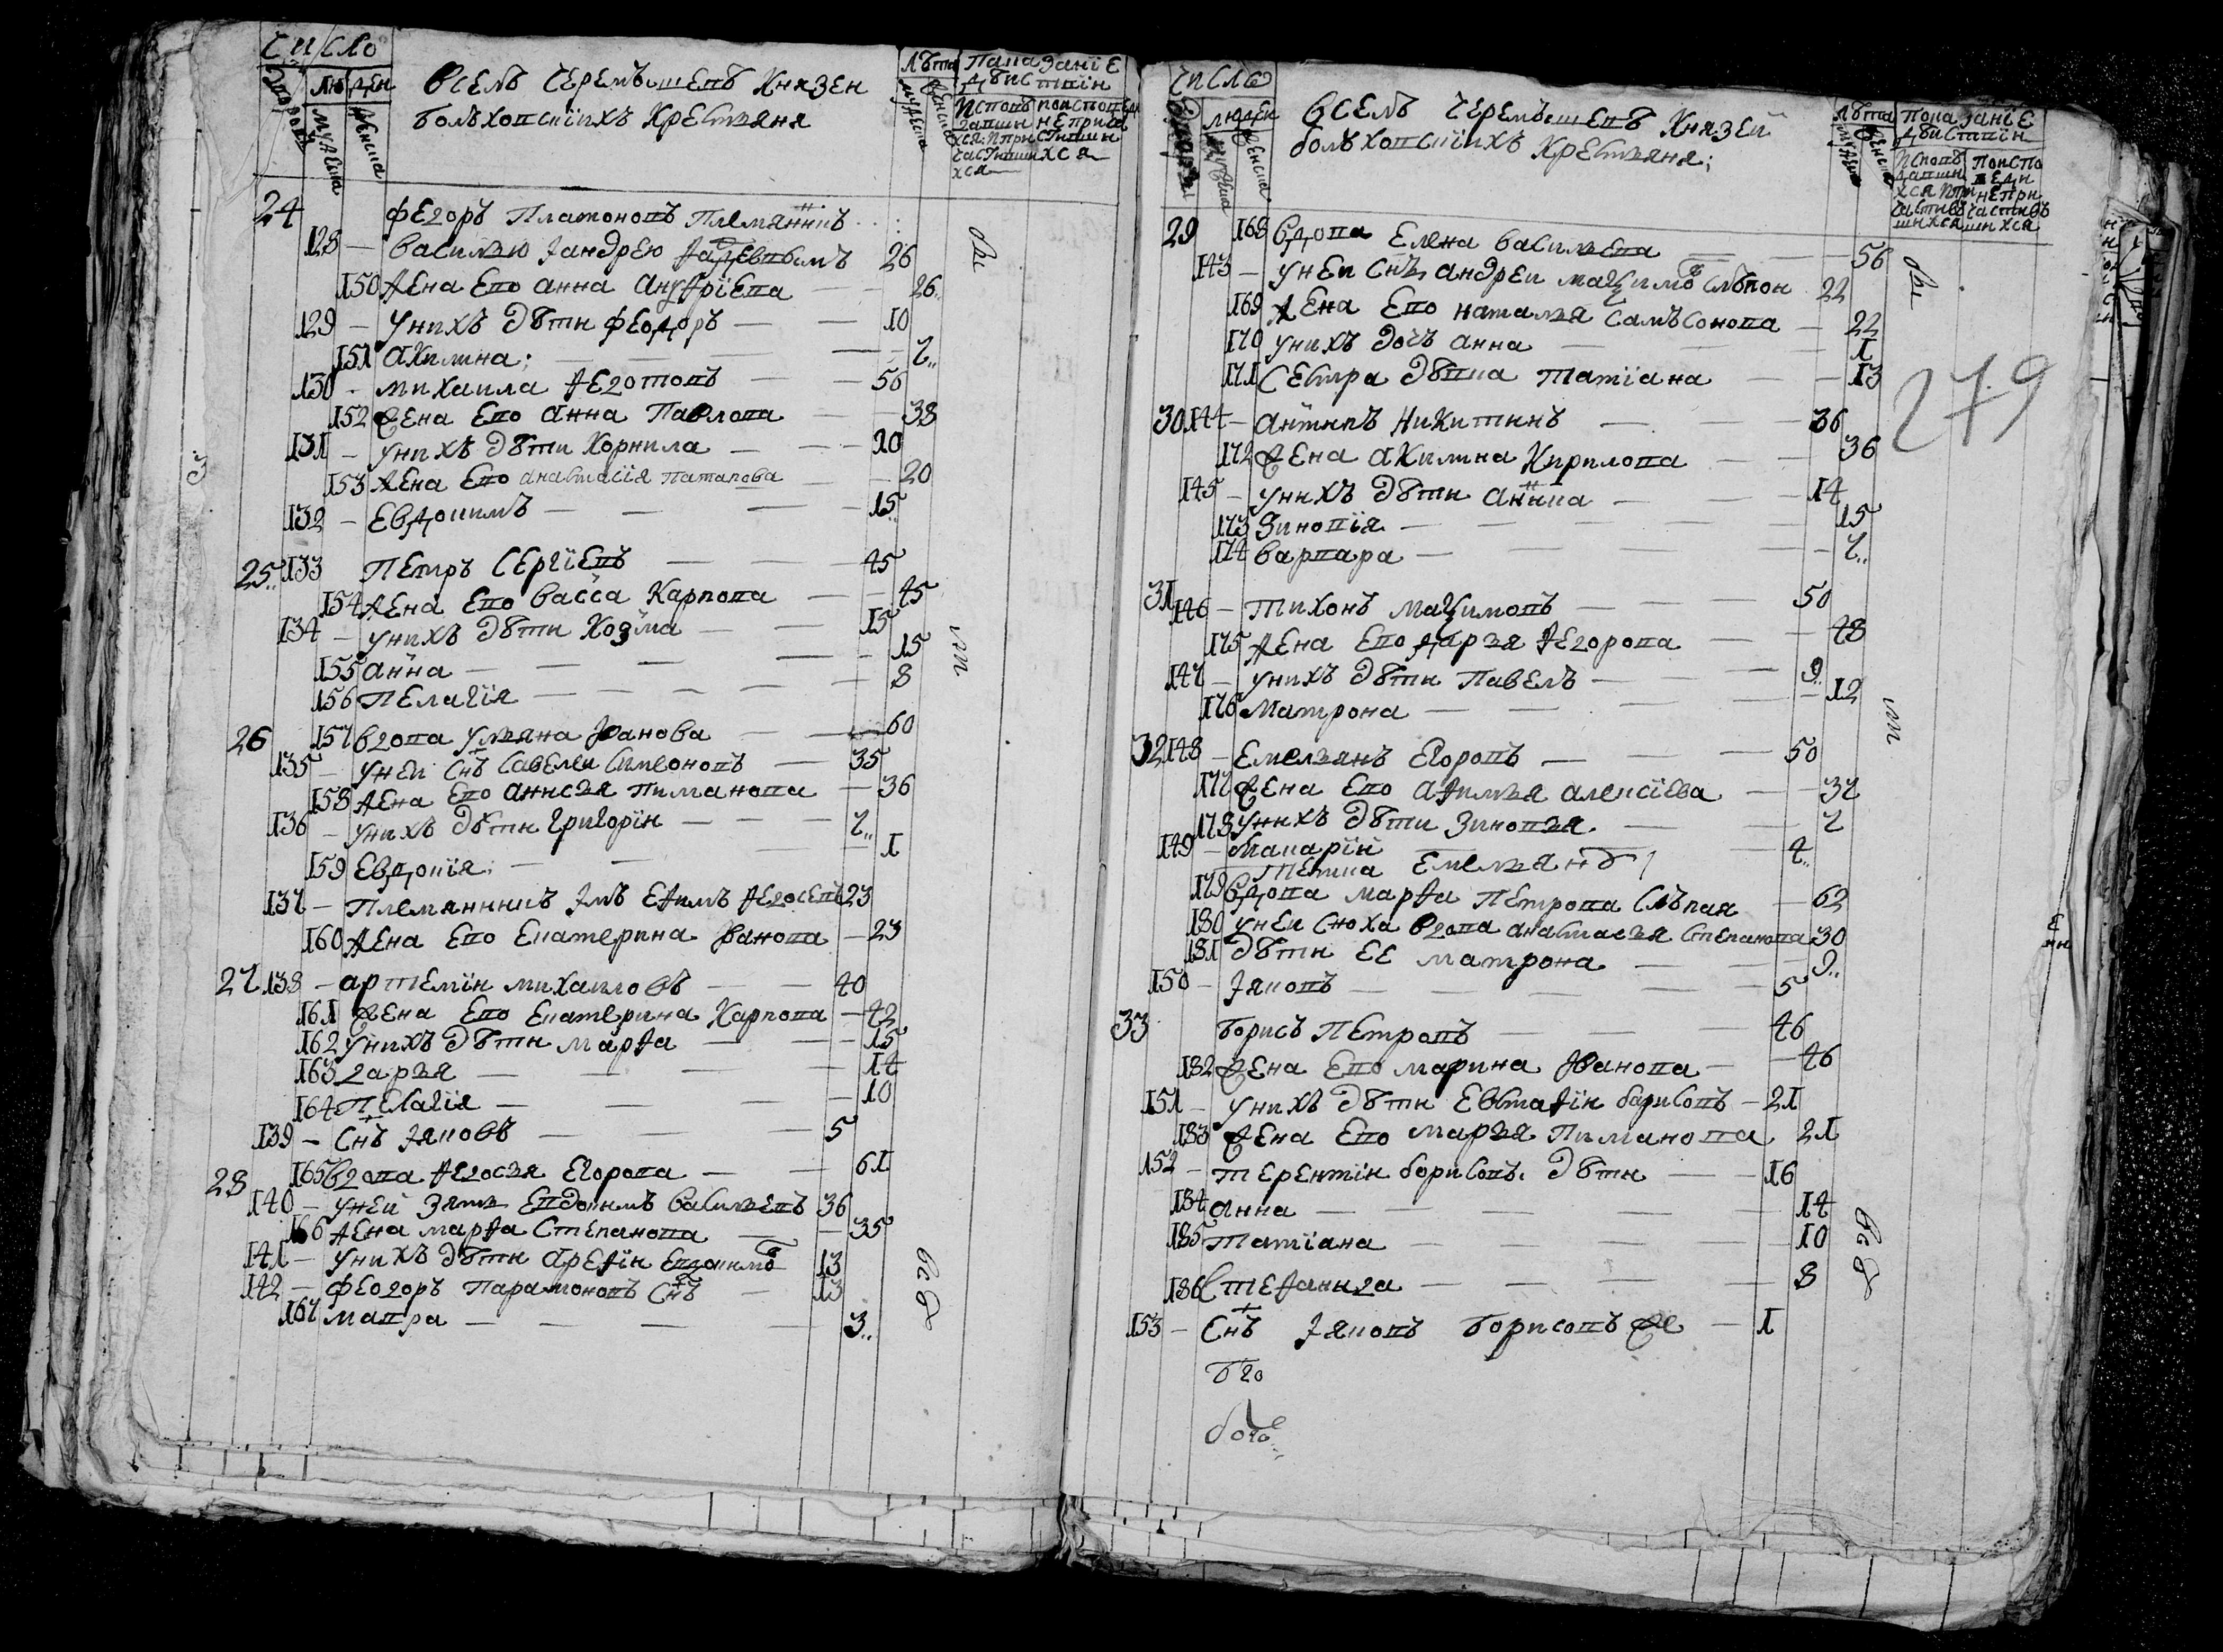 Число
Дворовъ
людей
мужеска
женска
Вселѣ Черемъшневѣ Князей
Болъховскїихъ Крестьяня
лѣта
мужеска
женска
Паказанїе
дѣйствїи
24 Феdоръ Платоновъ Племянникъ
128 — Василью Iандрею 26
150 Жена Ево Анна Ануфрїева — 26
129 — Унихъ Дѣти Феодоръ — 10
151 Акилина; — 7
130 — Михаила Федотовъ — 56
152 Жена Ево Анна Павлова — 38
131 — Унихъ Дѣти Корнила — 20
153 Жена Ево Анастасїя Патапова — 20
132 — Евдокимъ — 15
25 133 Петръ Сергїевъ — 45
154 Жена Ево Васса Карпова — 45
134 — Унихъ Дѣти Козма — 15
155 Анна — 15
156 Пелагїя — 8
26 157 Вдова Ульяна Иванова — 60
135 — Уней Снъ Савелеи Симеоновъ — 35
158 Жена Ево Анисья Пиманова — 36
136 — Унихъ Дѣти Григорїи — 7
159 Евдокїя; — 1
137 — Племянникъ Iмъ Ефимъ Федосеевъ 23
160 Жена Ево Екатерина Иванова — 23
27 138 — Артемїи Михаиловъ — 40
161 Жена Ево Екатерина Карпова — 42
162 Унихъ Дѣти Марфа — 15
163 Дарья — 14
164 Пелагїя — 10
139 — Снъ Iяковъ — 5
28 165 Вдова Федосья Егорова — 61
140 — Уней Зять Евдокимъ Васильевъ 36
166 Жена Марфа Степанова — 35
141 — Унихъ Дѣти Арефїи Евдокимовъ 13
142 — Феодоръ Парамоновъ Снъ — 13
167 Мавра — 3
вы
ли
всѣ
Число
людей
женска
Вселѣ Черемъшневѣ Князей
Болъховскїихъ Крестьяня;
лѣта
женска
Показанїе
дѣйствїи
279
29 168 Вдова Елена Васильева — 56
143 — Уней Снъ Андреи Мазимовъ Слѣпои 22
169 Жена Ево Наталья Самъсонова — 22
170 Унихъ Дочь Анна — 1
171 Сестра Дѣвка Татїана — 13
30 144 — Антипъ Никитинъ — 36
172 Жена Акилина Кирилова — 36
145 — Унихъ Дѣти — 14
173 Зиновїя — 15
174 Варвара — 7
31 146 — Тихонъ Мазимовъ — 50
175 Жена Ево Дарья Федорова — 48
147 — Унихъ Дѣти Павелъ — 9
176 Матрона — 12
32 148 — Емельянъ Егоровъ — 50
177 Жена Ево Афимья Алексїева — 37
178 Унихъ Дѣти Зиновья. — 7
149 — Макарїи — 4
Тетка Емельяну
179 Вдова Марфа Петрова Слѣпая — 62
180 Уней Сноха Вдова Анастасья Степанова 30
181 Дѣти Ее Матрона — 9
150 — Iяковъ — 5
33 Борисъ Петровъ — 46
182 Жена Ево Марина Иванова — 46
151 — Унихъ Дѣти Евстафїи Борисовъ — 21
183 Жена Ево Марья Пиманова 21
152 — Терентїи Борисовъ. Дѣти — 16
184 Анна — 14
185 Татїана — 10
186 Стефанида — 8
153 — Снъ Iяковъ Борисовъ же — 1
вы
ли
всѣ